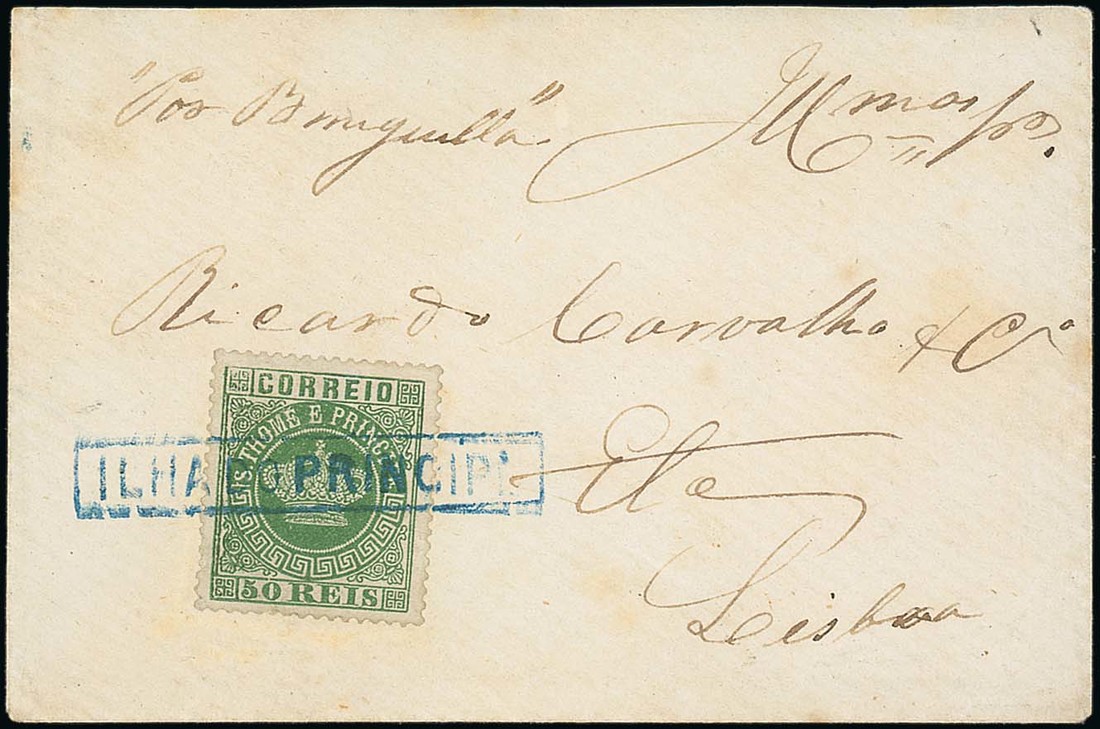 "Por Benguella"
Illmos Snrs.
Ricardo Carvalho & Ca
Eta
Lisboa
CORREIO
S. THOME E PRINCIPE
50 REIS
ILHA DO PRINCIPE